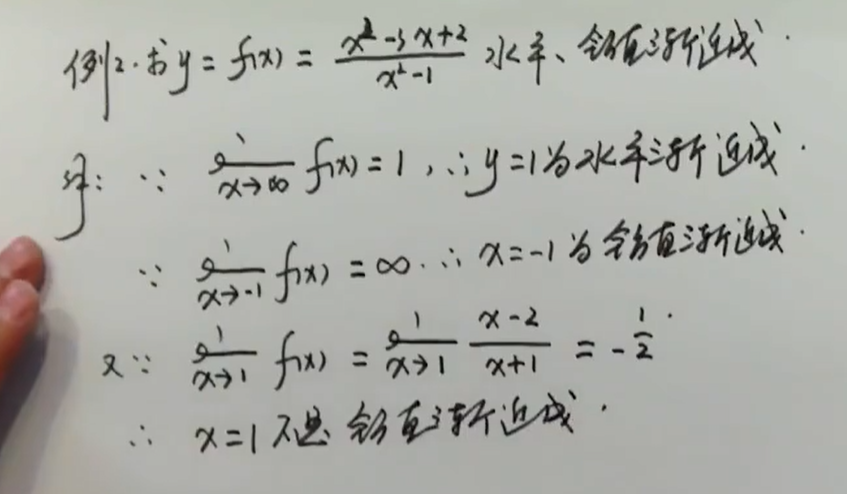 例2. 求 y = f(x) = \frac{x^2-3x+2}{x^2-1} 水平、铅直渐近线.
解: ∵ \lim_{x→∞} f(x) = 1, ∴ y = 1 为水平渐近线.
∵ \lim_{x→-1} f(x) = ∞. ∴ x = -1 为铅直渐近线.
又∵ \lim_{x→1} f(x) = \lim_{x→1} \frac{x-2}{x+1} = -\frac{1}{2}.
∴ x = 1 不是铅直渐近线.